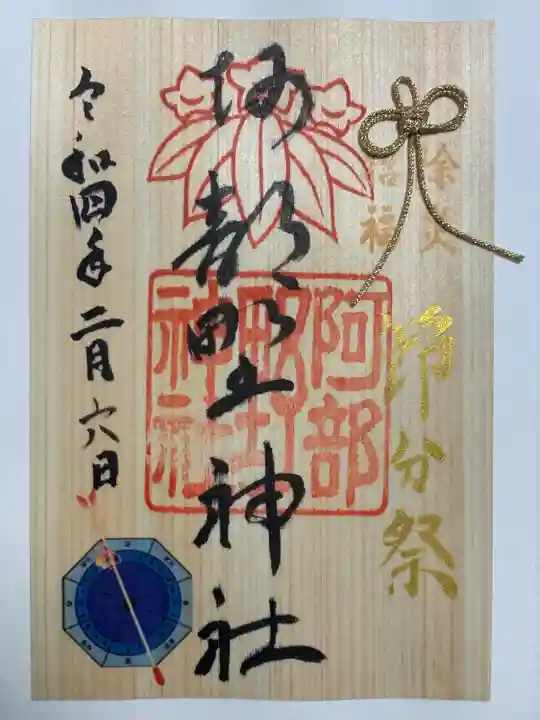 除災
招福
節分祭
阿部野神社
阿部
野
神社
令和四年二月六日